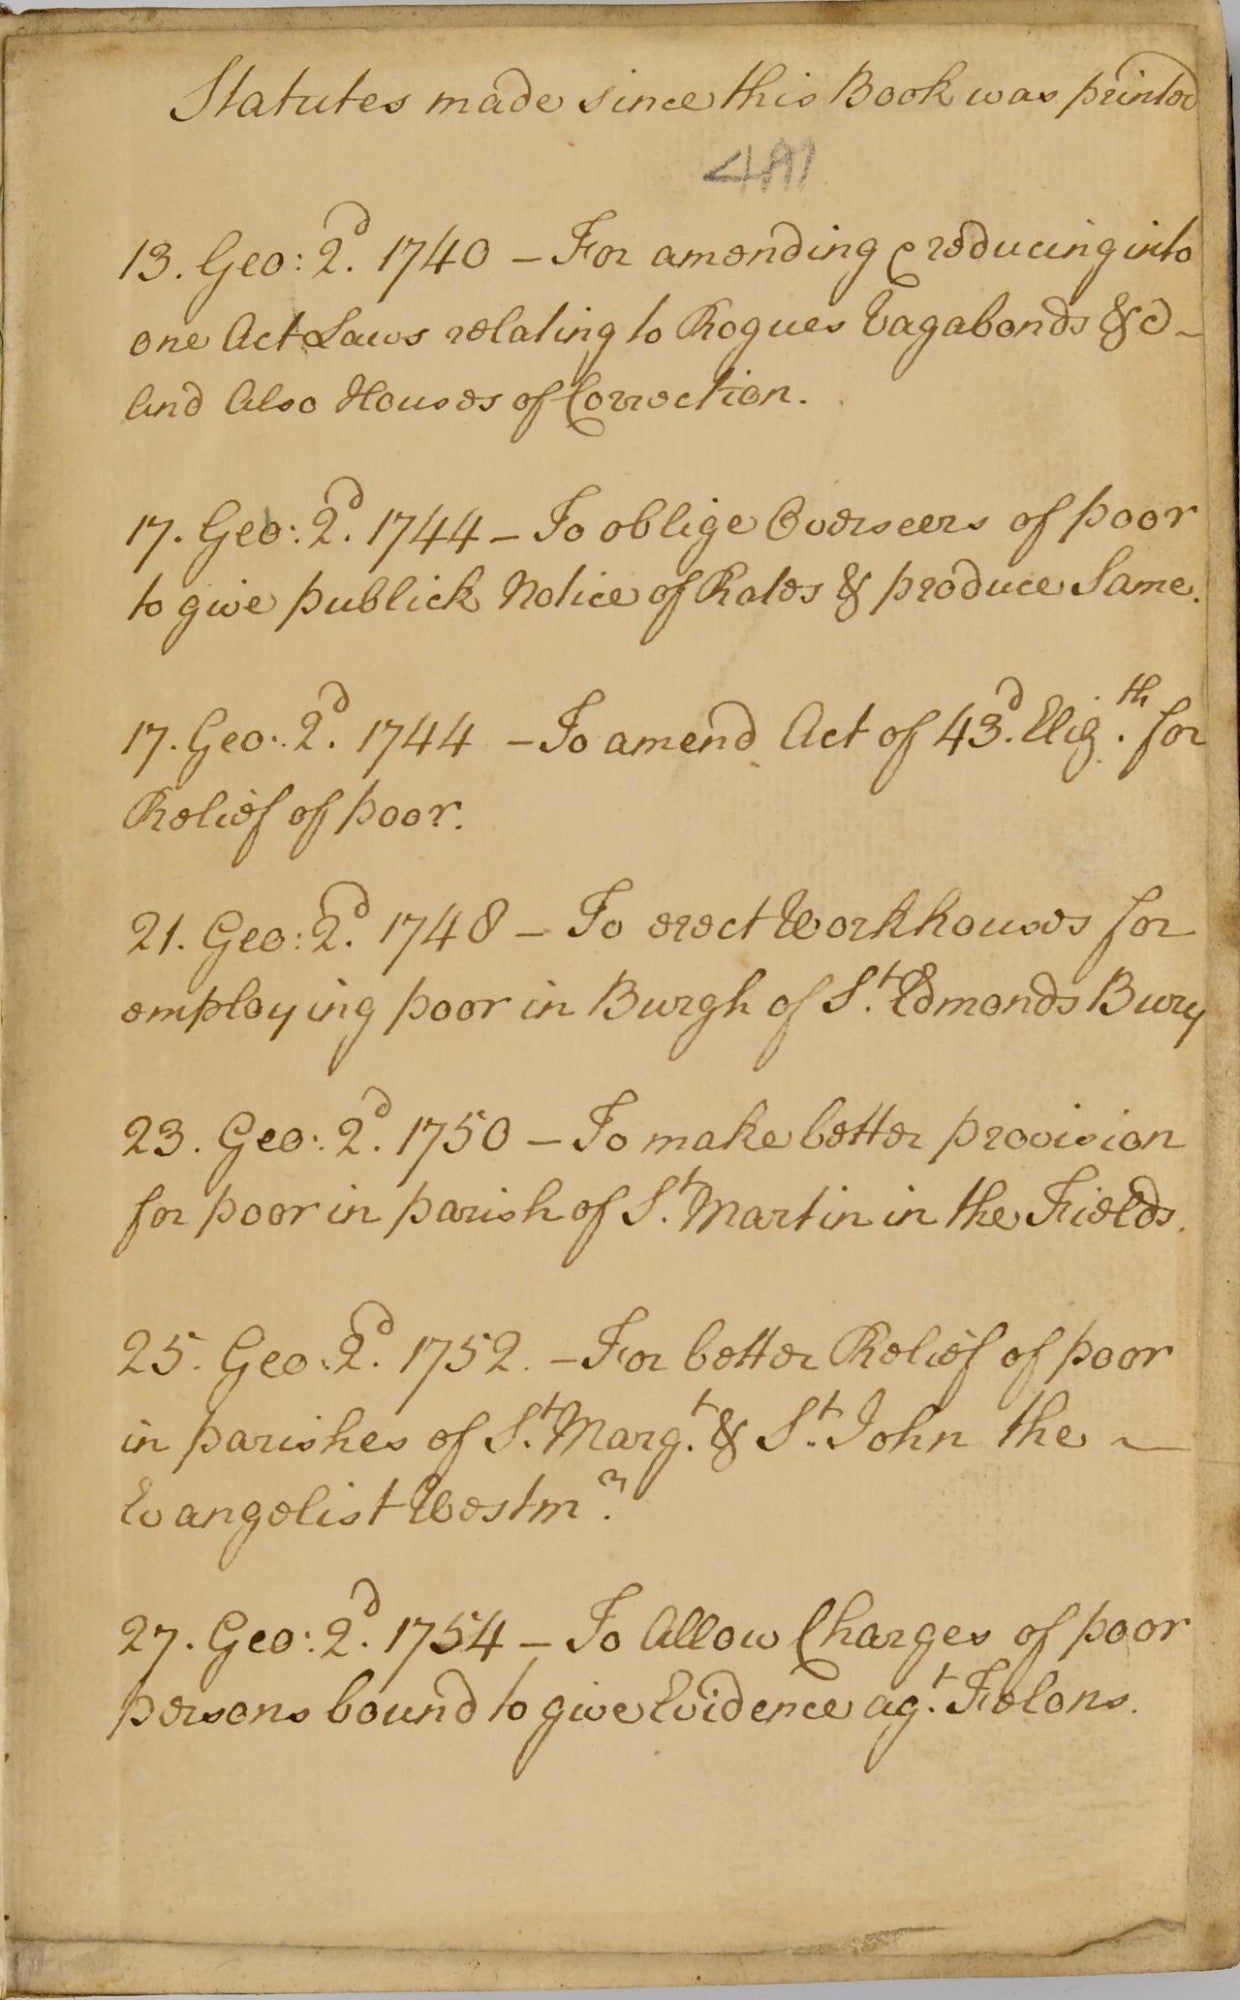 Statutes made since this Book was printed
13. Geo: 2.d 1740 – For amending & reducing into
one Act Laws relating to Rogues Vagabonds &c –
And Also Houses of Correction.
17. Geo: 2.d 1744 – To oblige Overseers of poor
to give publick Notice of Rates & produce Same.
17. Geo: 2.d 1744 – To amend Act of 43.d Eliz.th for
Relief of poor.
21. Geo: 2.d 1748 – To erect Workhouses for
employing poor in Burgh of S.t Edmonds Bury
23. Geo: 2.d 1750 – To make better provision
for poor in parish of S.t Martin in the Fields.
25. Geo: 2.d 1752. – For better Relief of poor
in parishes of S.t Marg.t & S.t John the –
Evangelist Westm.r
27. Geo: 2.d 1754 – To Allow Charges of poor
persons bound to give Evidence ag.t Felons.